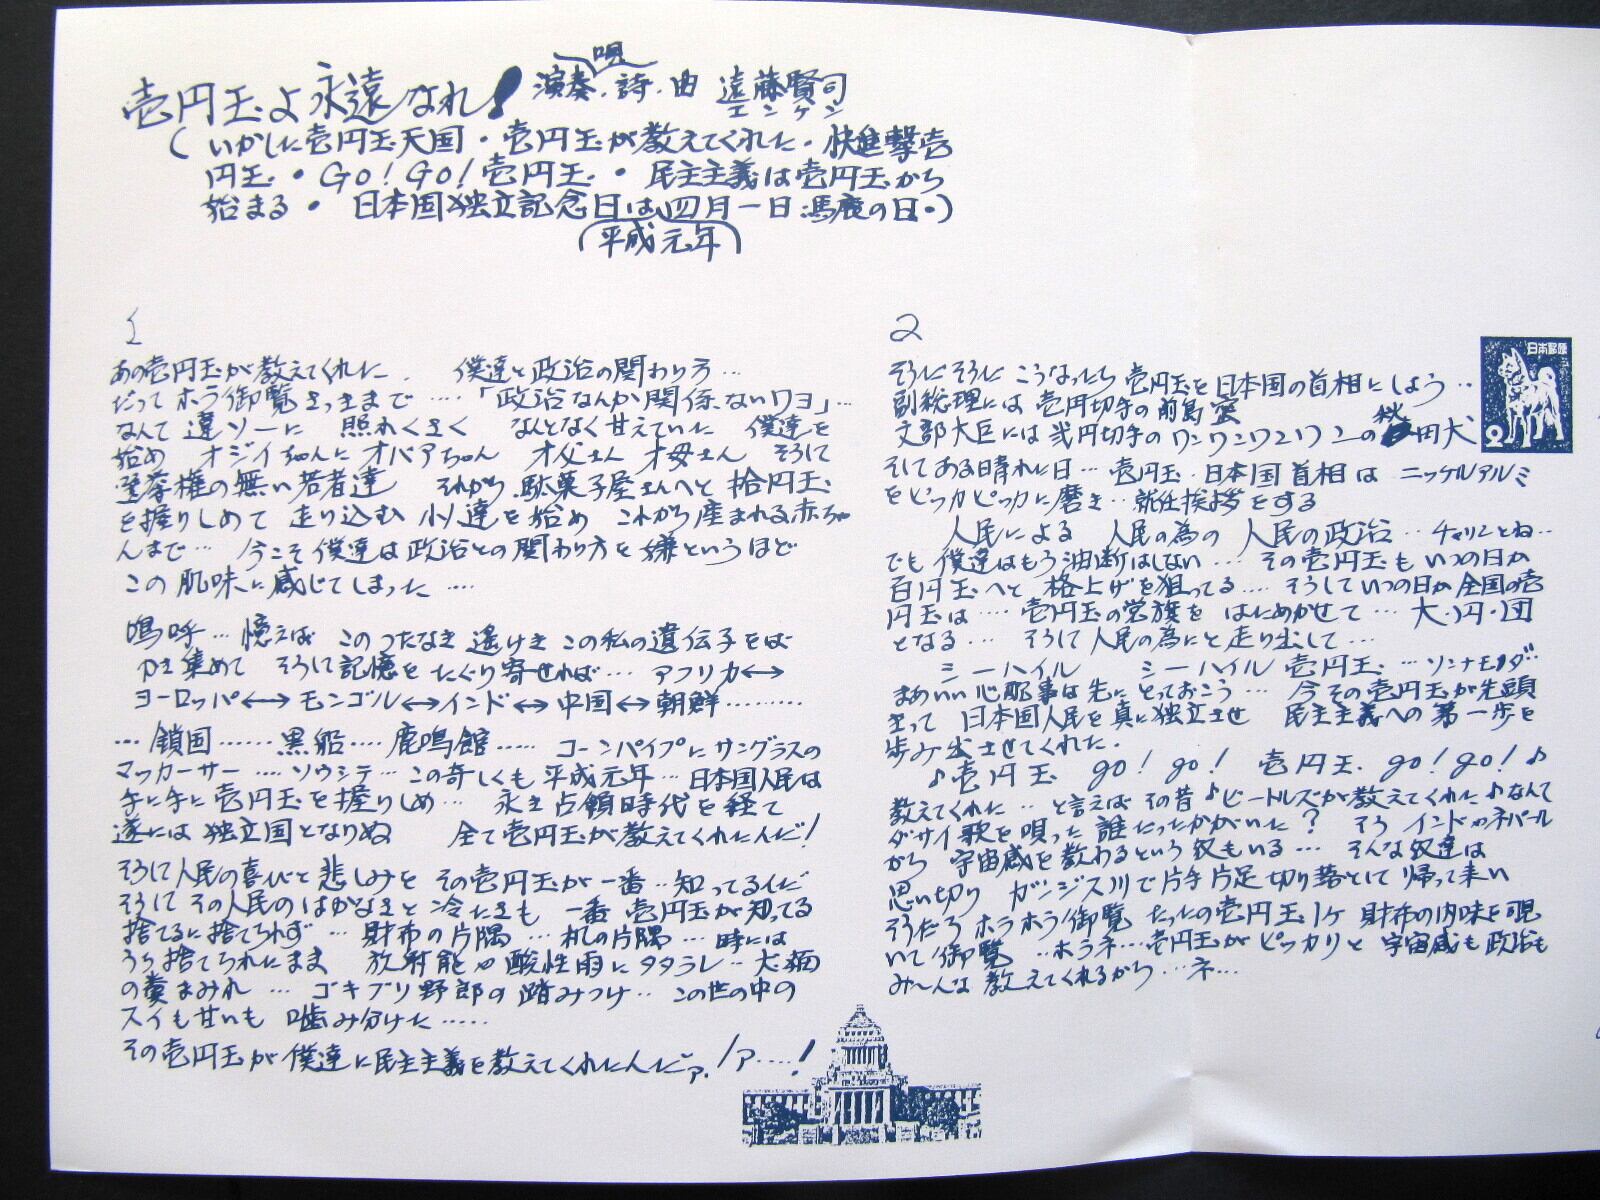 壱円玉よ永遠なれ!
唄
演奏・詩・曲 遠藤賢司
エンケン
(いかした壱円玉天国・壱円玉が教えてくれた・快進撃壱
円玉・GO!GO!壱円玉・民主主義は壱円玉から
始まる・日本国独立記念日は、四月一日馬鹿の日・)
(平成元年)
1
あの壱円玉が教えてくれた . 僕達と政治の関わり方…
だって ホラ御覧 さっきまで ….「政治なんか関係ないワヨ」…
なんて 遠ソーに 照れくさく なんとなく甘えていた 僕達を
始め オジイちゃんに オバアちゃん オ父さん オ母さん そして
選挙権の無い若者達 それから 駄菓子屋さんへと 拾円玉
を握りしめて 走り込む 小人達を始め これから産まれる赤ちゃ
んまで… 今こそ僕達は政治との関わり方を 嫌というほど
この 肌味に感じてしまった ….
嗚呼… 憶えば このつたなき 遙けき この私の遺伝子をば
かき集めて そして記憶を たぐり寄せれば… アフリカ↔
ヨーロッパ↔モンゴル↔インド↔中国↔朝鮮………
… 鎖国……黒船…. 鹿鳴館….. コーンパイプにサングラスの
マッカーサー …. ソウシテ… この奇しくも 平成元年… 日本国人民は
手に手に 壱円玉を握りしめ… 永き占領時代を経て
遂には 独立国となりぬ 全て壱円玉が教えてくれたんだ!
そして人民の喜びと 悲しみを その壱円玉が一番..知ってるんだ
そして その人民の はかなさと 冷たさも 一番 壱円玉が知ってる
捨てるに捨てられず … 財布の片隅 … 机の片隅 … 時には
うち捨てられたまま 放射能や酸性雨にタタラレ… 犬猫
の糞まみれ … ゴキブリ野郎の踏みつけ… この世の中の
スイも甘いも 噛み分けた …..
その壱円玉が 僕達に民主主義を教えてくれたんだァ!ァ….!
2
そうだ そうだ こうなったら 壱円玉を日本国の首相にしよう..
副総理には 壱円切手の 前島 密
文部大臣には 弐円切手の ワンワンワンワンの秋田犬
日本郵便
2
そして ある晴れた日… 壱円玉・日本国首相は ニッケルアルミ
をピッカピッカに磨き..就任挨拶をする
人民による 人民の為の 人民の政治 .. チャリンとね..
でも 僕達はもう油断はしない … その壱円玉も いつの日か
百円玉へと 格上げを狙ってる …. そしていつの日か全国の壱
円玉は …. 壱円玉の党旗を はためかせて … 大・円・団
となる … そして人民の為にと走り出して…
シーハイル シーハイル 壱円玉 …ソンナモンダ
まあいい 心配事は先にとっておこう … 今その壱円玉が先頭
きって 日本国人民を真に独立させ 民主主義への第一歩を
歩み出させてくれた.
♪壱円玉 go! go! 壱円玉 go! go! ♪
教えてくれた .. と言えば その昔♪ビートルズが教えてくれた♪なんて
ダサイ歌を唄った誰だったかがいた? そう インドやネパール
から 宇宙感を教わるという奴もいる … そんな奴達は
思い切り ガンジス川で片手片足切り落として 帰って来い
そうだろ ホラホラ御覧 たったの壱円玉1ケ 財布の内味を覗
いて御覧 ..ホラネ…壱円玉が ピッカリと 宇宙感も政治も
み〜んな 教えてくれるから …ネ…